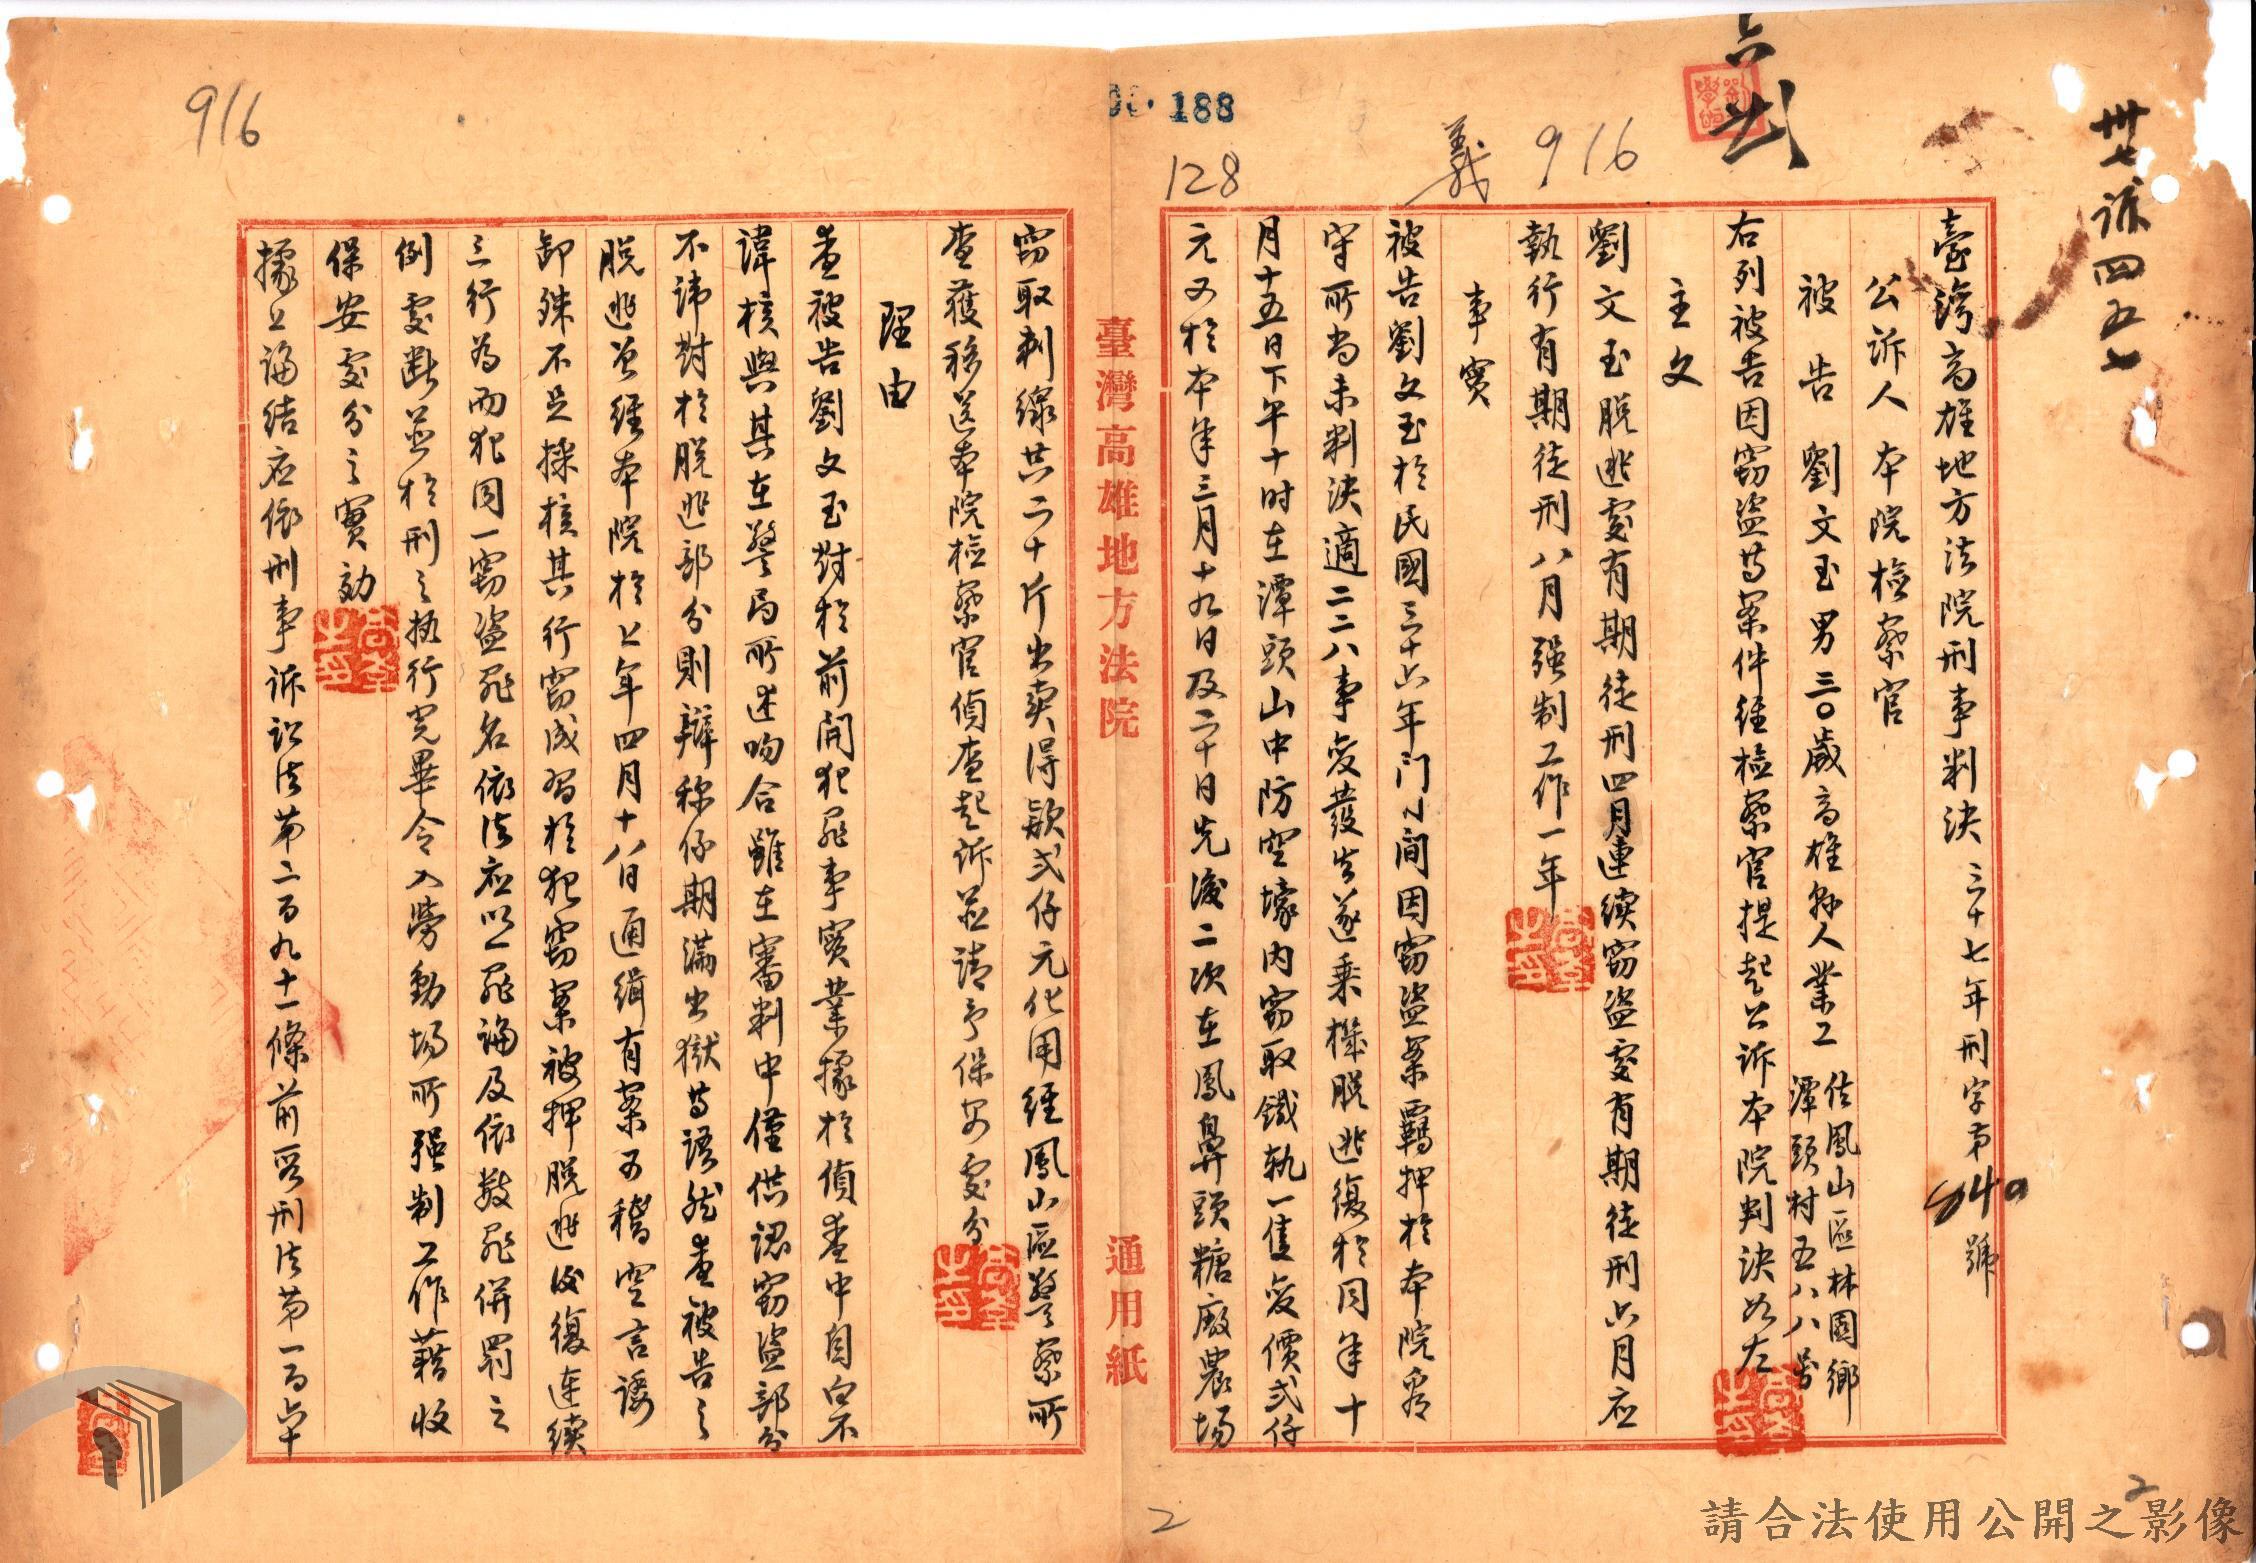 卅七訴四五七
916
義
188
128
臺灣高雄地方法院刑事判決 三十七年刑字第 號
公訴人 本院檢察官
被告 劉文玉 男 三〇歲 高雄縣人 業工 住鳳山區林園鄉
潭頭村五八八号
右列被告因竊盜等案件經檢察官提起公訴本院判決如左
主文
劉文玉脫逃處有期徒刑四月連續竊盜處有期徒刑六月应
執行有期徒刑八月強制工作一年
事實
被告劉文玉於民國三十六年 間因竊盜案羈押於本院看
守所尚未判決適二二八事變發生遂乘機脫逃復於同年十
月十五日下午十时在潭頭山中防空壕内竊取鐵軌一隻変價弍仟
元又於本年三月十九日及二十日先後二次在鳳鼻頭糖廠農場
臺灣高雄地方法院 通用紙
916
竊取刺線共二十斤出卖得款弍仟元化用經鳳山區警察所
查獲移送本院檢察官偵查起訴並請予保安處分
理由
查被告劉文玉對於前開犯罪事實業據於偵查中自白不
諱核與其在警局所述吻合雖在審判中僅供認竊盜部分
不諱對於脫逃部分則辯称係期滿出獄等語然查被告之
脫逃曾經本院於上年四月十八日通緝有案可稽空言諉
卸殊不足採核其行竊成習於犯竊案被押脫逃後復連續
三行為而犯同一竊盜罪名依法应以一罪論及依數罪併罰之
例處斷並於刑之執行完畢令入勞動場所強制工作藉收
保安處分之實効
據上論結应依刑事訴訟法第二百九十一條前段刑法第一百六十
2
2
請合法使用公開之影像